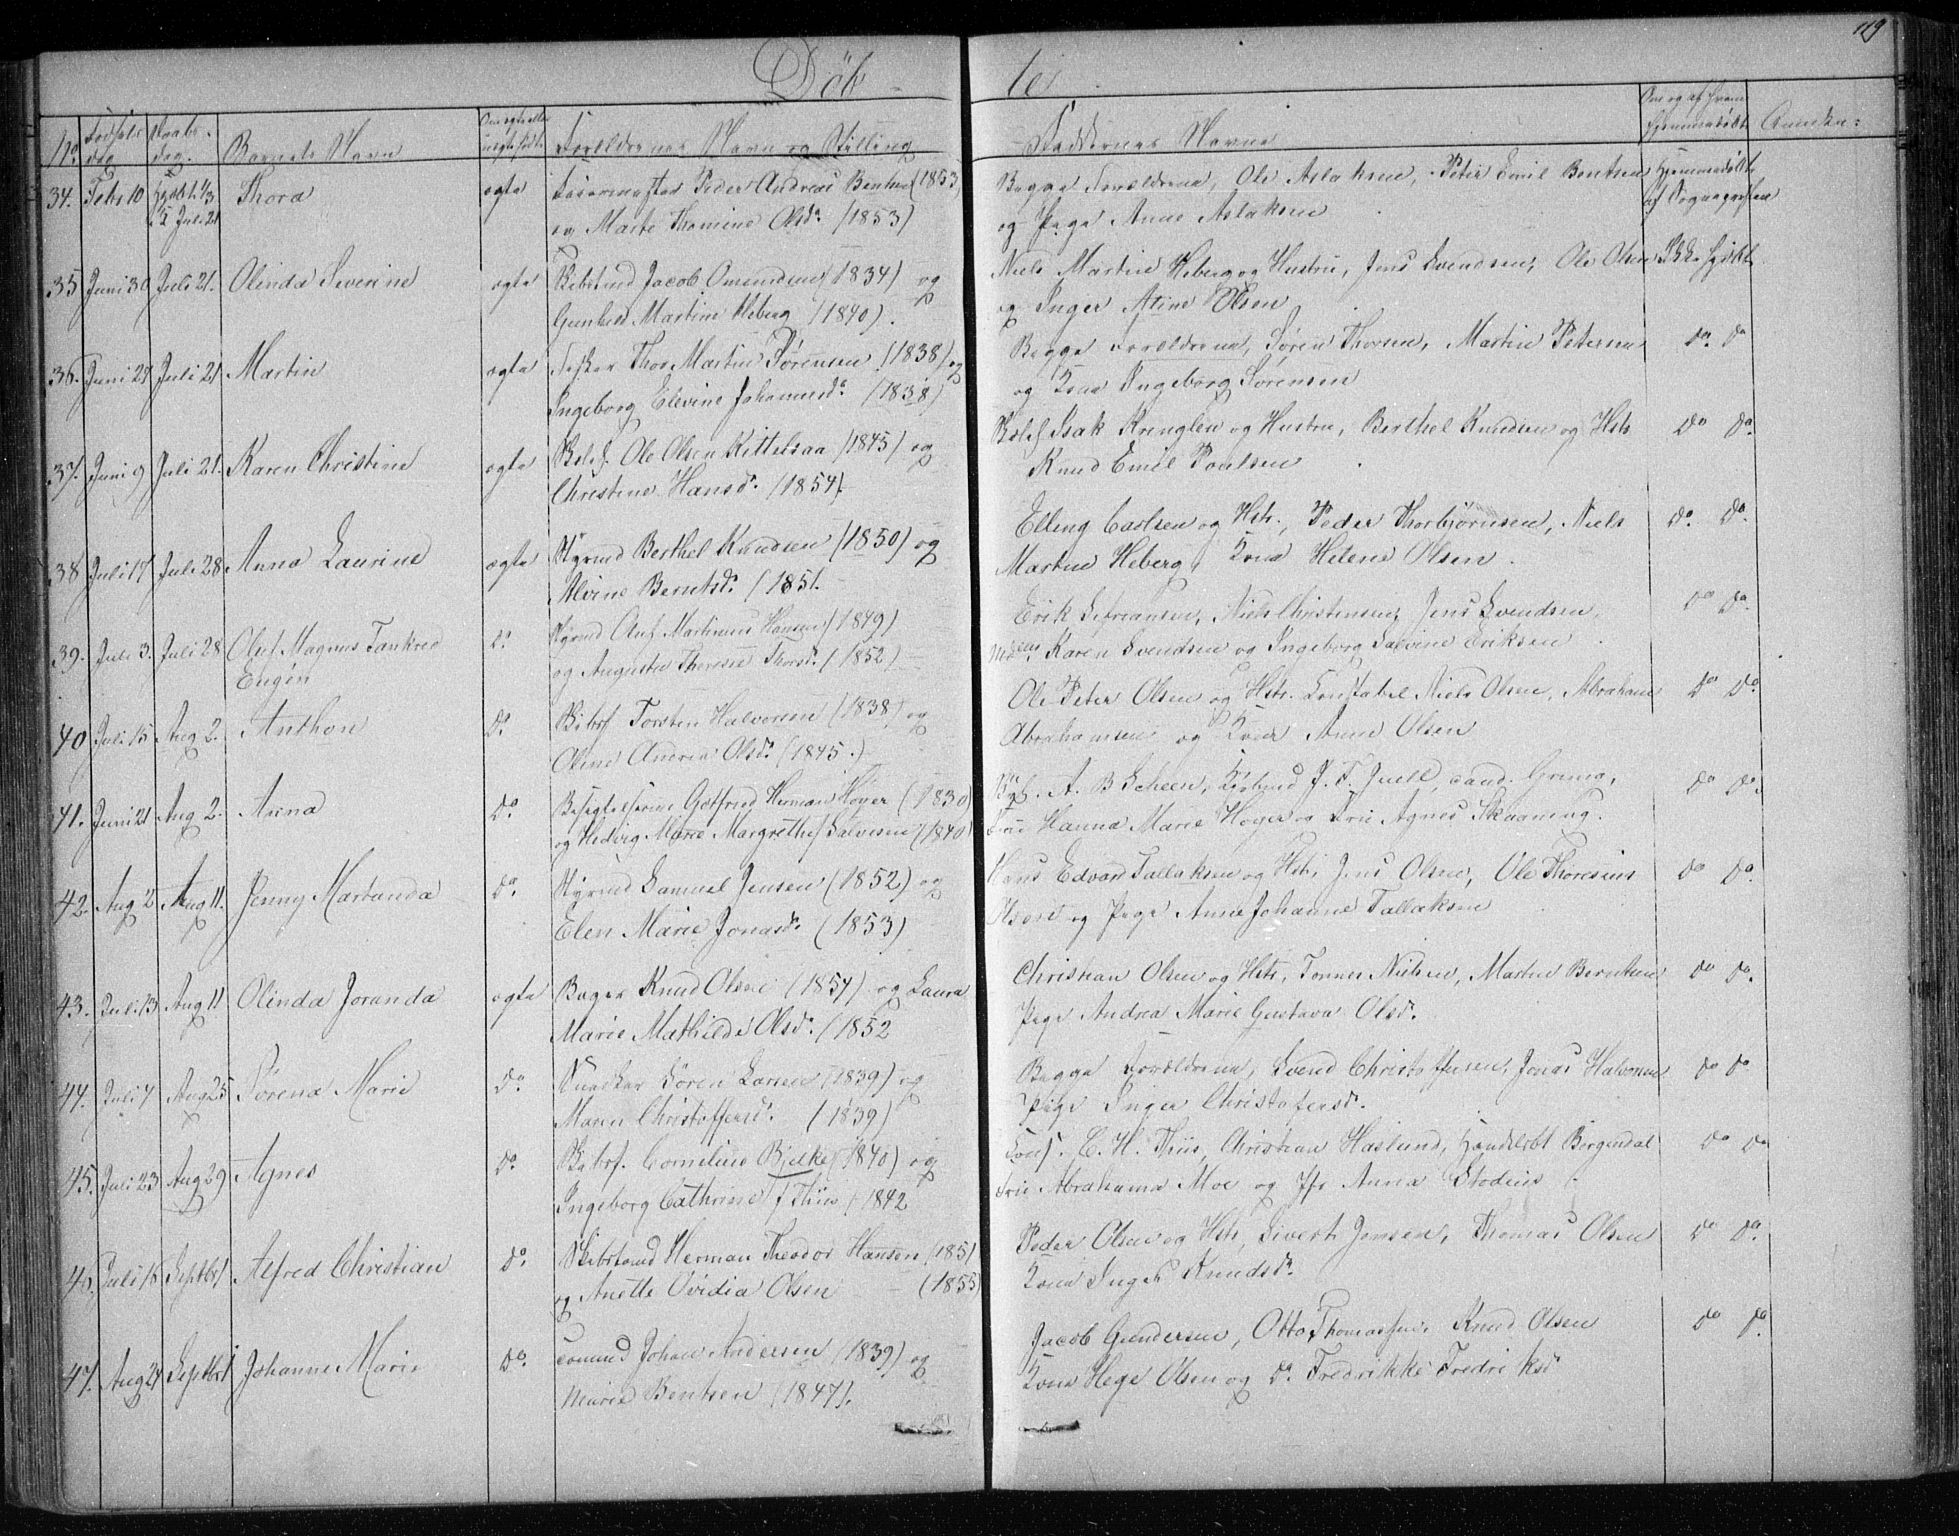 119
Døb - te
No. Fødsels dag. Daabs- dag. Barnets Navn Om ægte eller uægte født Forældrenes Navn og Stilling Faddernes Navne Om og af hvem hjemmedøbt Anmærk:
34. Febr 10 Hjdbt. 1/3 Juli 21 Thora ægte Peder Andreas Bentsen (1853)
og Marte Thomine Olsdr. (1853)
Begge Forældrene, Ole Aslaksen, Peter Emil Bentsen Hjemmedøbt
og Pige Anne Aslaksen af Sognepresten
35 Juni 30 Juli 21. Olinda Severine ægte Jacob Omundsen (1834) og
Gunhild Martine Heberg (1840).
Niels Martin Heberg og Hustru, Jens Svendsen, Ole Olsen Ikke hjdbt.
og Inger Atine Olsen
36. Juni 29 Juli 21 Martin ægte Fisker Thor Martin Sørensen (1838) og
Ingeborg Elevine Johannesdr. (1838)
Begge Forældrene, Søren Thorsen, Martin Petersen do. do
og Kone Ingeborg Sørensen
37. Juni 9 Juli 21. Karen Christine ægte Ole Olsen Kittelsaa (1845) og
Christine Hansdr. (1854).
Isak Kringlen og Hustru, Berthel Knudsen og Hstr. do do.
Knud Emil Poulsen
38 Juli 17 Juli 28 Anna Laurine ægte Styrmd Berthel Knudsen (1850) og
Alvine Berntsdr. (1851.
Elling Carlsen og Hstr., Peder Thorbjørnsen, Niels do. do.
Martin Heberg, Kone Helene Olsen.
39. Juli 3. Juli 28 Oluf Magnus Tankred do. Styrmd Martinius Hansen (1849)
Eugén og Augusta Therese Thorsdr. (1852)
Erik Sefreansen, Niels Christensen, Jens Svendsen, do do.
Karen Svendsen og Ingeborg Salvine Eriksen
40 Juli 15 Aug 2. Anthon do. Torsten Halvorsen (1838) og
Oline Andrea Olsdr. (1845.)
Ole Peter Olsen og Hstr. Konstabel Niels Olsen, Abraham do do.
Abrahamsen og Kone Anne Olsen
41. Juni 21 Aug 2. Anna do. Gotfred Herman Høyer (1830)
og Hedvig Marie Margrethe f. Salvesen (1840)
A. B Scheen, J. F. Juell, cand.
Fru Hanna Marie Høyer og Fru Agnes Skaaning. do do.
42. Aug 2 Aug 11. Jenny Martanda do. Styrmd Samuel Jensen (1852) og
Elen Marie Jonasdr. (1853)
Hans Edvard Tallaksen og Hstr, Jens Olsen, Ole Thoresius do do.
og Pige Anne Johanne Tallaksen
43. Juli 13 Aug 11 Olinda Joranda ægte Bager Knud Olsen (1854) og Laura
Marie Mathilde Olsdr. (1852
Christian Olsen og Hstr, Tønnes Nielsen, Martin Berntsen do do.
Pige Andrea Marie Gustava Olsdr.
44. Juli 7 Aug 25 Sørena Marie do. Snedker Søren Larsen (1839) og
Maren Christoffersdr. (1839)
Begge Forældrene, Svend Christoffersen, Jonas Halvorsen do do
Pige Inger Christofersdr.
45. Juli 23 Aug 29 Agnes do. Skibsf. Cornelius Bjelke (1840) og
Ingeborg Cathrine f. Thiis (1842
C. H. Thiis, Christian Haslund, Bergendal do do
Fru Abrahama Moe og Jfr Anna Stodius.
46. Juli 16 Septbr 1 Alfred Christian do. Herman Theodor Hansen (1851
og Anette Ovidia Olsen (1855)
Peder Olsen og Hstr, Sivert Jensen, Thomas Olsen do do.
Kone Inger Knudsdr.
47. Aug 24 Septbr 1 Johanne Marie do. Johan Andersen (1839) og
Marie Bentsen (1847).
Jacob Gundersen, Otto Thomassen, Knud Olsen do do.
Kone Hege Olsen og do. Fredrikke Fredriksdr